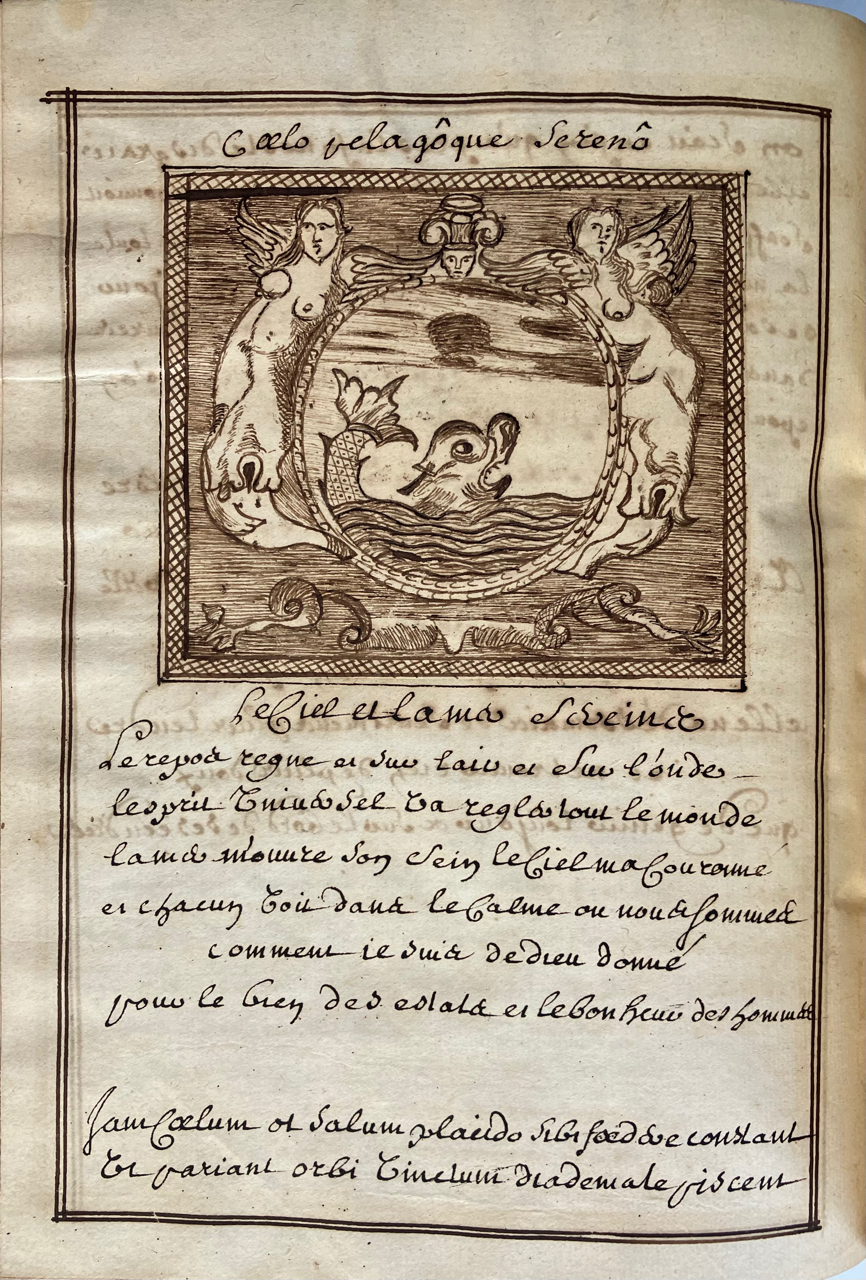 Cœlo pelagôque Serenô
Le Ciel et la mer Sereine
Le repos regne et sur lair et sur l'onde
lesprit Universel va regler tout le monde
la mer m'ouure son sein le Ciel ma Couronné
et chacun voit dans le Calme ou nous sommes
comment ie suis de dieu donné
pour le bien des estats et le bonheur des hommes
Jam Cœlum et Salum placido sibi fœdere constant
Ut pariant orbi Vinctum diademate piscem